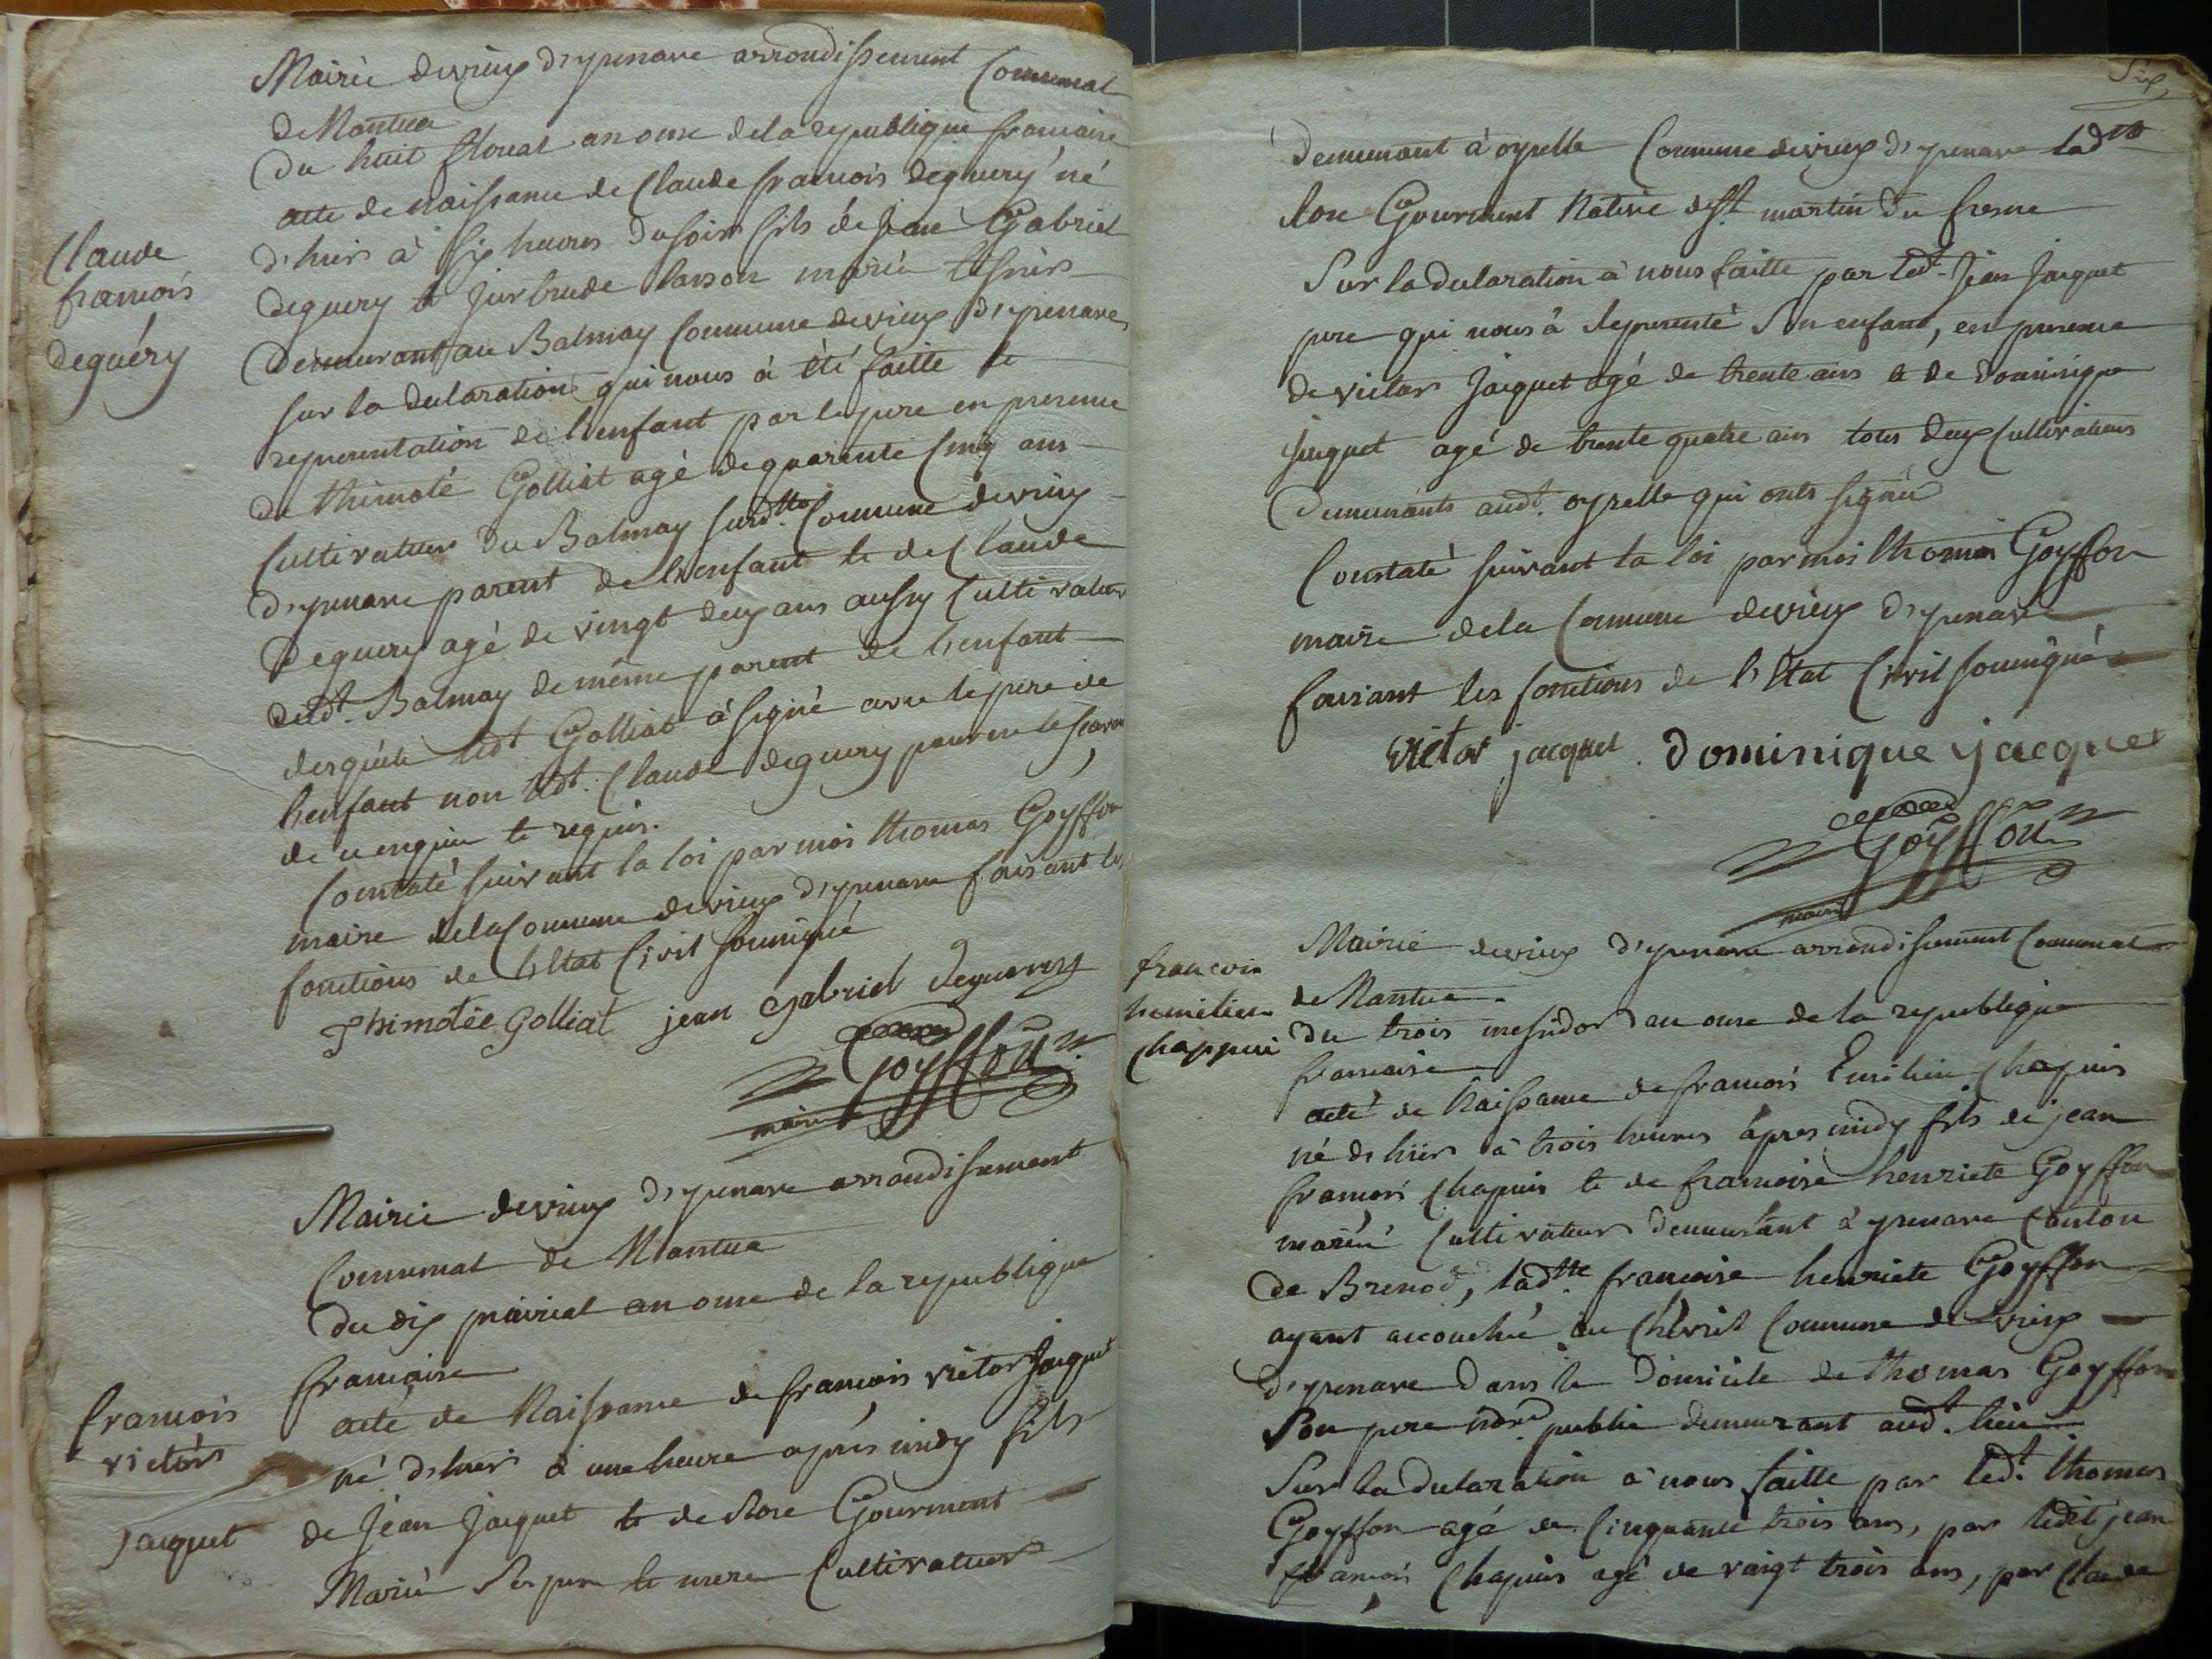 Mairie devieux d'yzenave arrondissement Communal
de Nantua
Du huit floreal an onze dela republique francaise
acte de naissance de Claude francois deguery né
d'hier à six heures du soir fils de jean Gabriel
deguery et jurtrude
demeurant au Balmay Commune devieux d'yzenave,
sur la declaration qui nous à été faitte et
representation de l'enfant par le pere en presence
de thimoté Golliat agé de quarente cinq ans
Cultivateur du Balmay susdtte Commune devieux
d'yzenave parent de l'enfant et de Claude
deguery agé de vingt deux ans aussy Cultivateur
dudt. Balmay de même parent de l'enfant
desquels ledt Golliat à signé avec le pere de
l'enfant non ledt. Claude deguery pour ne le scavoir
de ce enquis et requis.
Constaté suivant la loi par moi thomas Goyffon
maire dela Commune devieux d'yzenave faisant les
fonctions de l'Etat Civil soussigné
Thimotée Golliat jean gabriel deguerry
Goyffon
maire
Claude
francois
deguéry
Mairie devieux d'yzenave arrondissement
Communal de Nantua
Du dix prairial an onze de la republique
francaise
acte de Naissance de francois victor Jacquet
né d'hier à une heure après midy fils
de Jean Jacquet et de Rose Gourmont
Mariés ses pere et mere Cultivateurs
francois
victor
Jacquet
Six
demeurant à oyselle Commune devieux d'yzenave ladtte
Rose Gourment Native de St martin du fresne
Sur la declaration à nous faitte par ledt. Jean Jacquet
pere qui nous à representé son enfant, en presence
de victor Jacquet agé de trente ans et de dominique
jacquet agé de trente quatre ans tous deux Cultivateurs
demeurants audt. oyselle qui onts signé
Constaté suivant la loi par moi thomas Goyffon
maire dela Commune devieux d'yzenave
faisant les fonctions de l'Etat Civil soussigné
victor jacquet. dominique jacquet
Goyffon
maire
Mairie devieux d'yzenave arrondissement Communal
de Nantua.
du trois messidor an onze de la republique
francaise
acte de Naissance de francois Emilien Chapuis
né d'hier à trois heures après midy fils de jean
francois Chapuis et de francoise henriete Goyffon
mariés Cultivateurs demeurant à yzenave Canton
de Brenod, ladtte. francoise henriete Goyffon
ayant accouché au Chevril Commune de vieux
d'yzenave dans le domicile de thomas Goyffon
Son pere nore. public demeurant audt. lieu
Sur la declaration à nous faitte par ledt. thomas
Goyffon agé de Cinquante trois ans, par ledit jean
francois Chapuis agé de vaigt trois ans, par Claude
francois
hemilien
Chappui